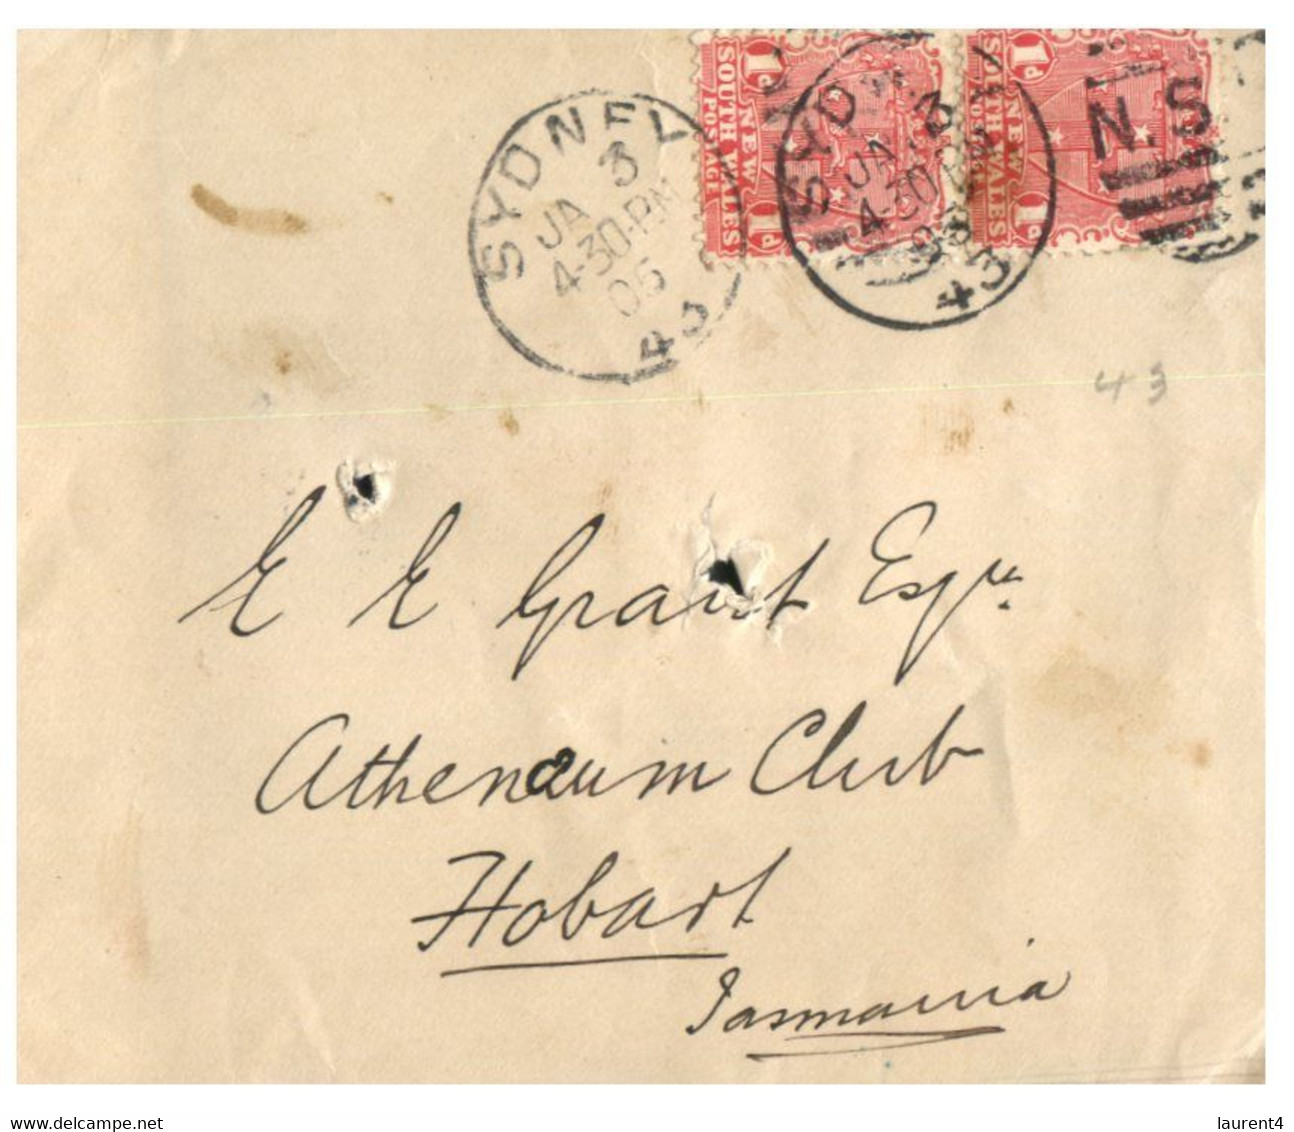 SYDNEY
JA 3
4-30.PM
06
43
1d
NEW
SOUTH WALES
POSTAGE
1d
SYDNEY
JA 3
4-30 P
43
1d
NEW
SOUTH WALES
POSTAGE
1d
N.S
43
E E Grant Esqre.
Athenæum Club
Hobart
Tasmania
delcampe.net
laurent4